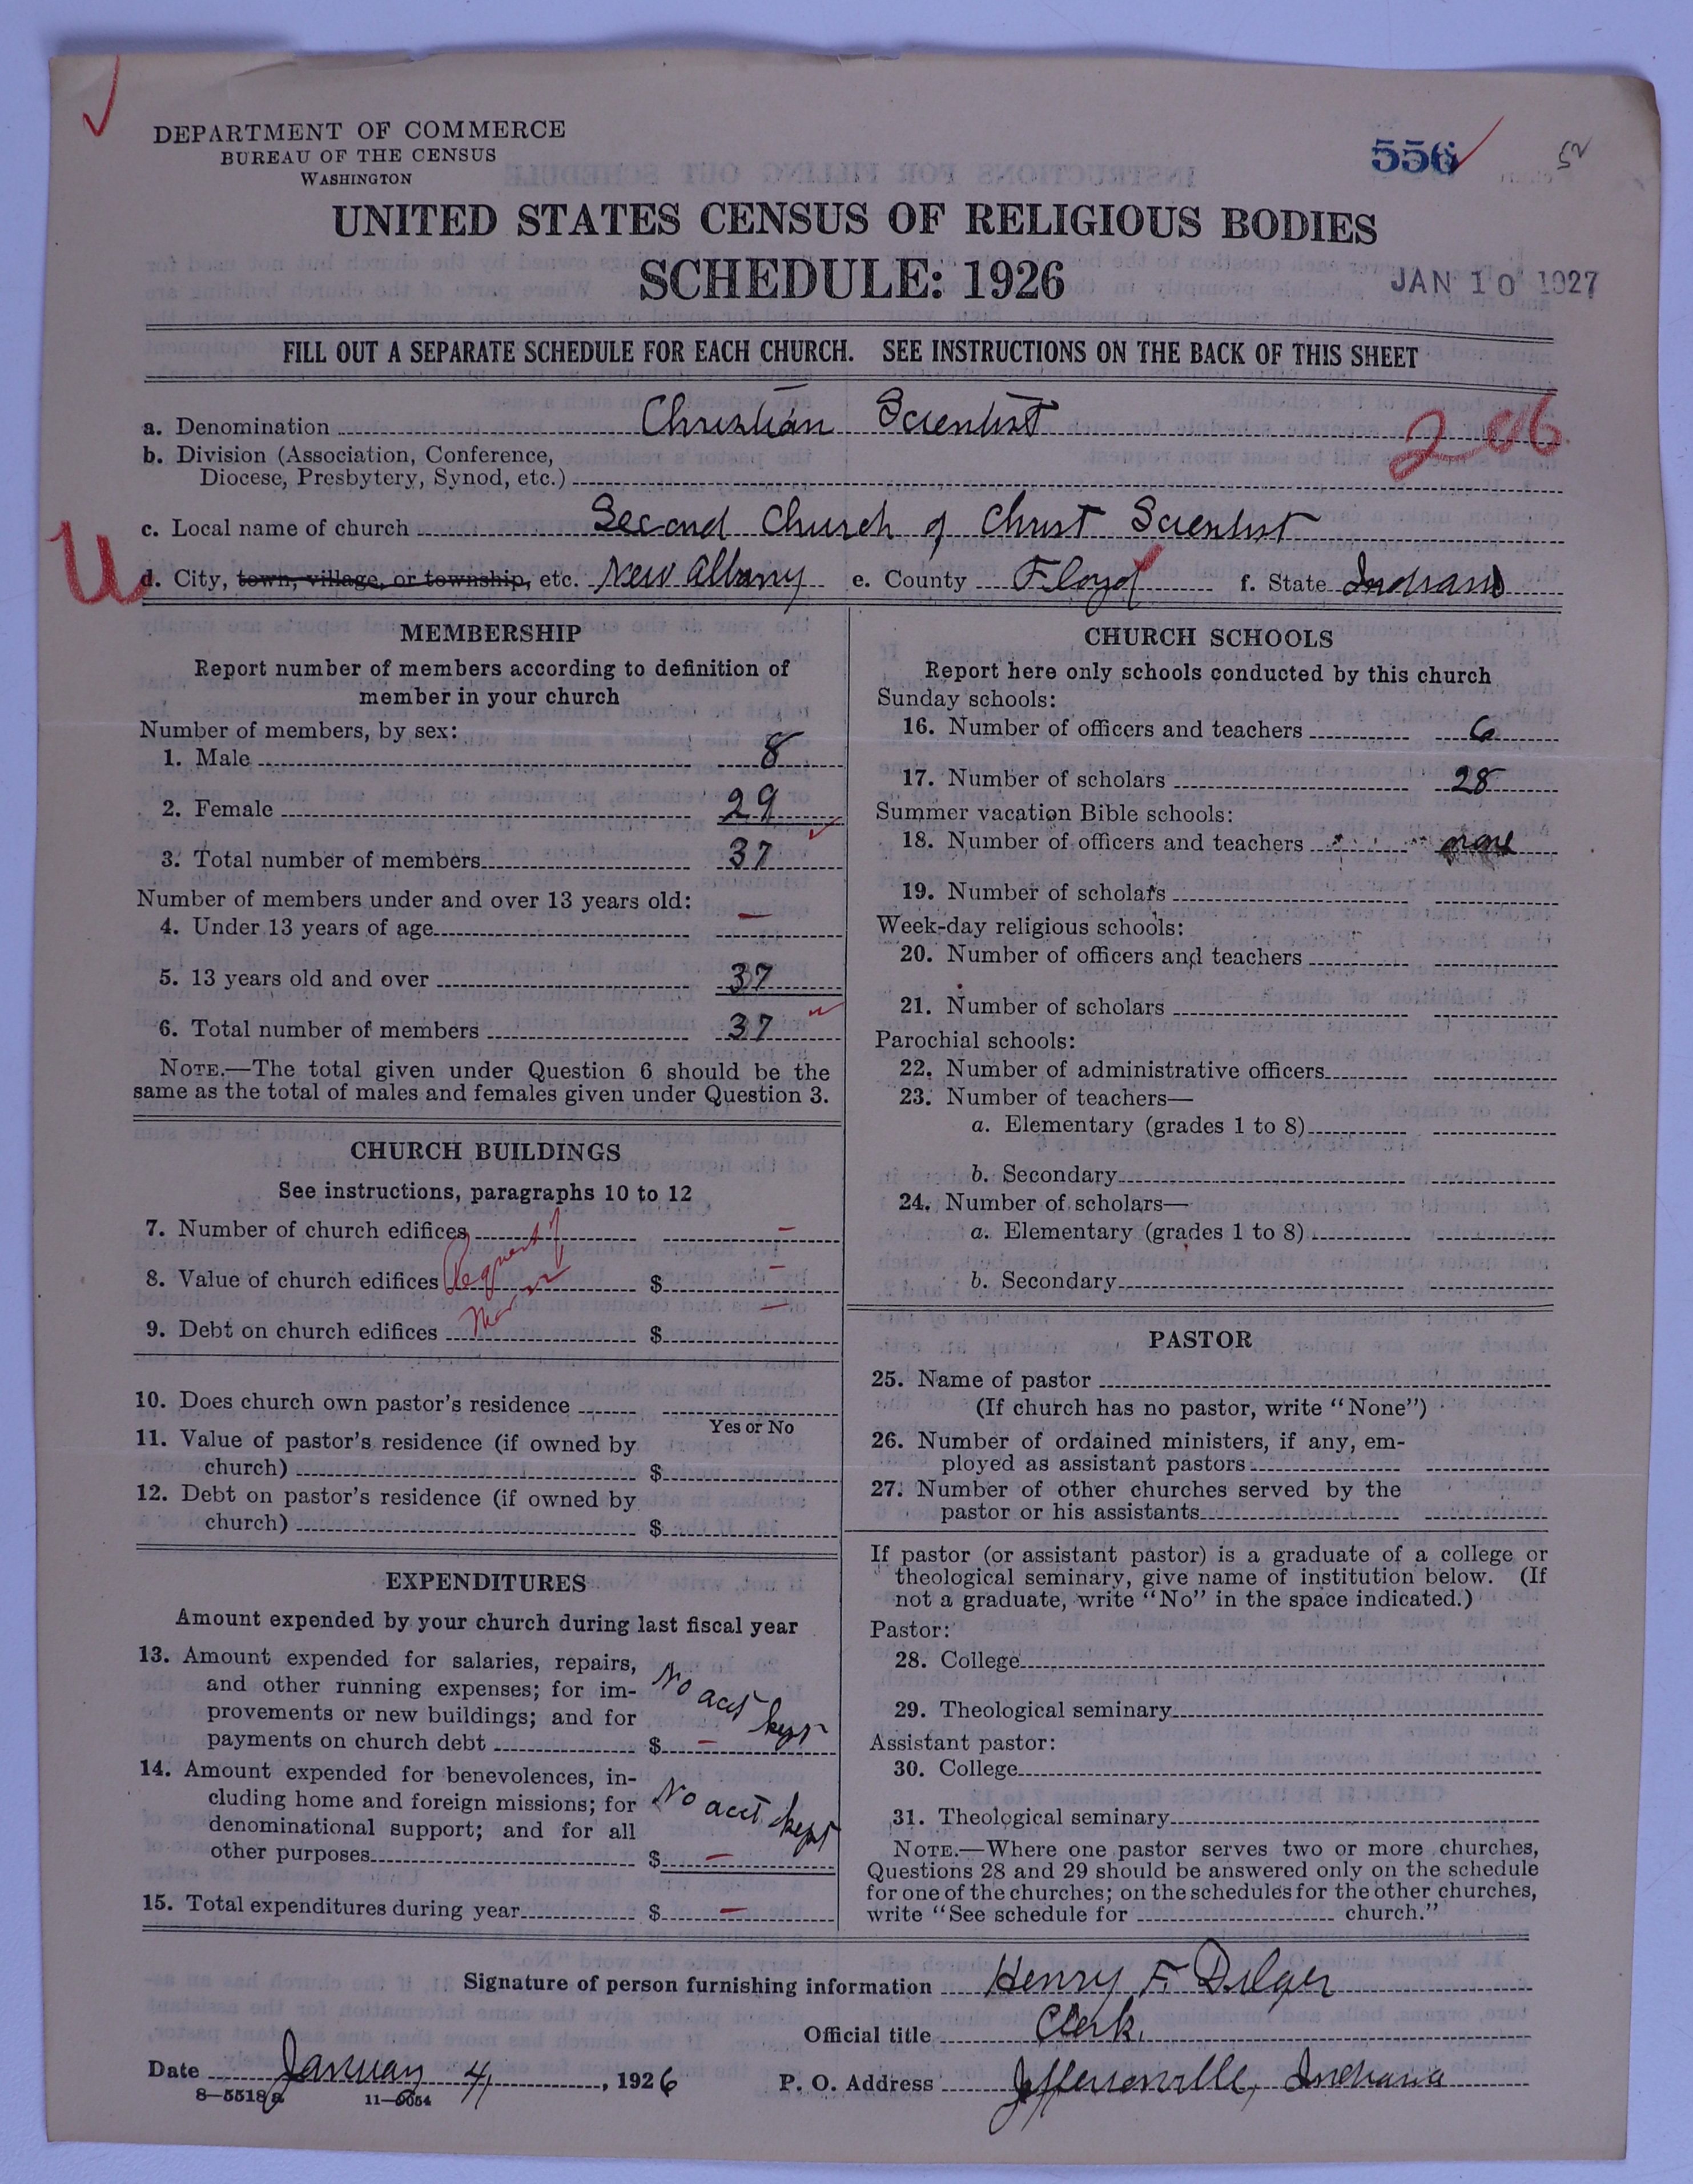 DEPARTMENT OF COMMERCE
BUREAU OF THE CENSUS
WASHINGTON
556
52
UNITED STATES CENSUS OF RELIGIOUS BODIES
SCHEDULE: 1926
JAN 10 1927
FILL OUT A SEPARATE SCHEDULE FOR EACH CHURCH. SEE INSTRUCTIONS ON THE BACK OF THIS SHEET
a. Denomination Christian Scientist
206
b. Division (Association, Conference,
Diocese, Presbytery, Synod, etc.)
c. Local name of church Second Church of Christ Scientist
U
d. City, town, village, or township, etc. New Albany e. County Floyd f. State Indiana
MEMBERSHIP
Report number of members according to definition of
member in your church
Number of members, by sex:
1. Male 8
2. Female 29
3. Total number of members 37
Number of members under and over 13 years old:
4. Under 13 years of age —
5. 13 years old and over 37
6. Total number of members 37
NOTE.—The total given under Question 6 should be the
same as the total of males and females given under Question 3.
CHURCH BUILDINGS
See instructions, paragraphs 10 to 12
7. Number of church edifices —
8. Value of church edifices $ —
9. Debt on church edifices $ —
10. Does church own pastor's residence
Yes or No
11. Value of pastor's residence (if owned by
church) $
12. Debt on pastor's residence (if owned by
church) $
EXPENDITURES
Amount expended by your church during last fiscal year
13. Amount expended for salaries, repairs,
and other running expenses; for im-
provements or new buildings; and for
payments on church debt $ —
No acct kept
14. Amount expended for benevolences, in-
cluding home and foreign missions; for
denominational support; and for all
other purposes $ —
No acct kept
15. Total expenditures during year $ —
CHURCH SCHOOLS
Report here only schools conducted by this church
Sunday schools:
16. Number of officers and teachers 6
17. Number of scholars 28
Summer vacation Bible schools:
18. Number of officers and teachers none
19. Number of scholars
Week-day religious schools:
20. Number of officers and teachers
21. Number of scholars
Parochial schools:
22. Number of administrative officers
23. Number of teachers—
a. Elementary (grades 1 to 8)
b. Secondary
24. Number of scholars—
a. Elementary (grades 1 to 8)
b. Secondary
PASTOR
25. Name of pastor
(If church has no pastor, write "None")
26. Number of ordained ministers, if any, em-
ployed as assistant pastors
27. Number of other churches served by the
pastor or his assistants
If pastor (or assistant pastor) is a graduate of a college or
theological seminary, give name of institution below. (If
not a graduate, write "No" in the space indicated.)
Pastor:
28. College
29. Theological seminary
Assistant pastor:
30. College
31. Theological seminary
NOTE.—Where one pastor serves two or more churches,
Questions 28 and 29 should be answered only on the schedule
for one of the churches; on the schedules for the other churches,
write "See schedule for church."
Signature of person furnishing information Henry F. Dilger
Official title Clerk.
Date January 4, 1926 P. O. Address Jeffersonville, Indiana
8—5518a 11—6054